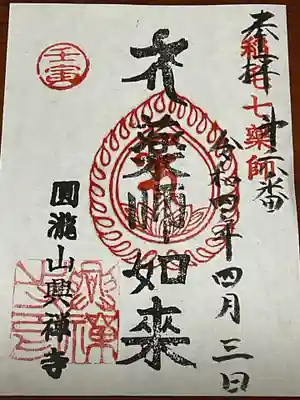 奉拝
稲毛七薬師
第六番
令和四年四月三日
大薬師如来
圓瀧山興禅寺
壬寅